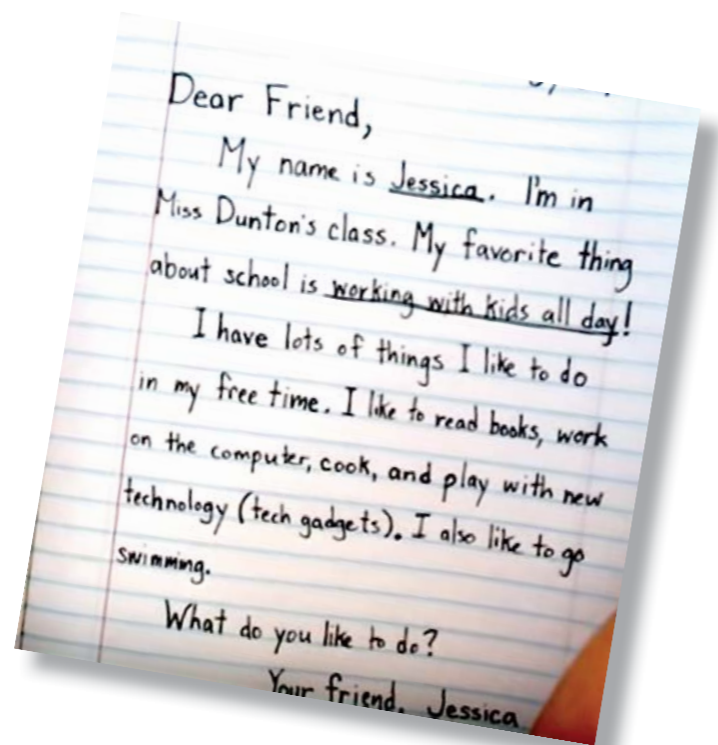 Dear Friend,
My name is Jessica. I'm in
Miss Dunton's class. My favorite thing
about school is working with kids all day!
I have lots of things I like to do
in my free time. I like to read books, work
on the computer, cook, and play with new
technology (tech gadgets). I also like to go
swimming.
What do you like to do?
Your friend, Jessica